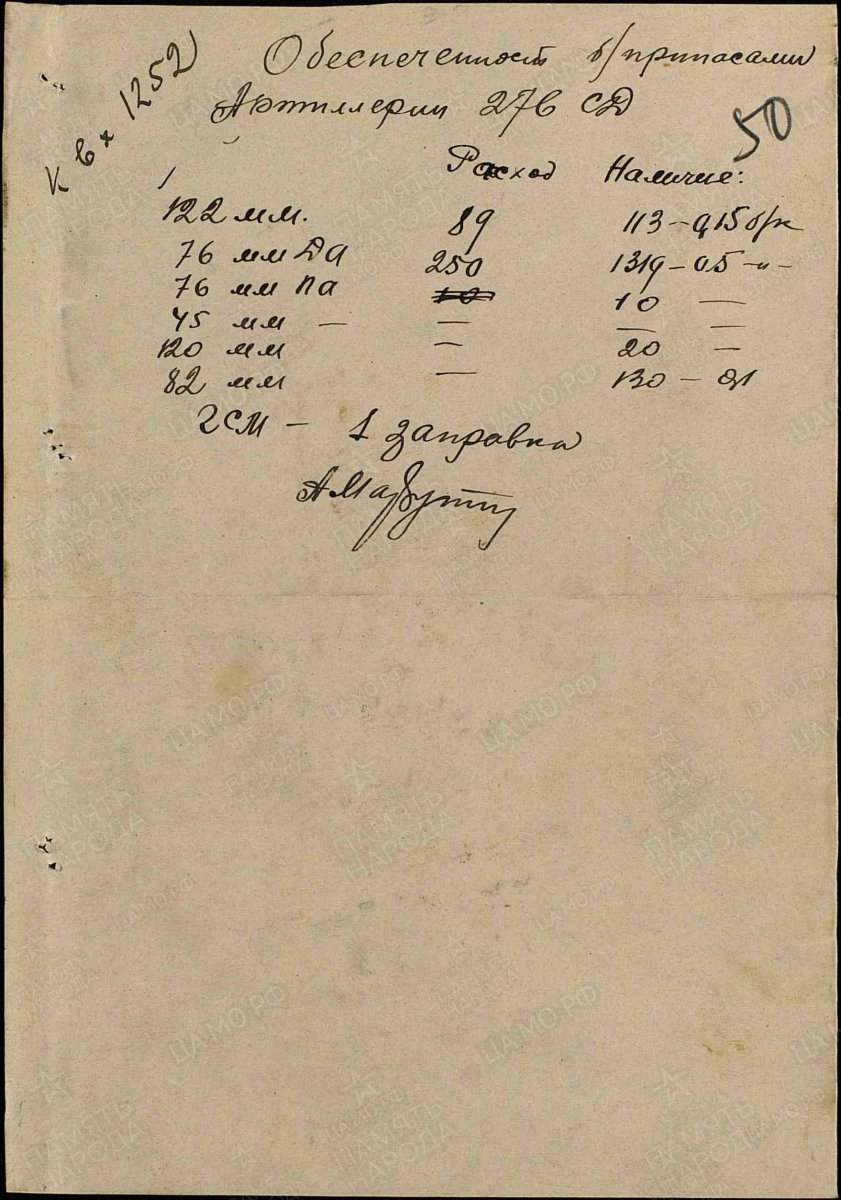 к вх 1252
Обеспеченност б/припасами
Артиллерии 276 СД
50
Расход Наличие:
122 мм. 89 113 – 0,15 б/к
76 мм ДА 250 1319 – 0.5 -"-
76 мм ПА 10 10 —
45 мм – — — —
120 мм — 20 —
82 мм — 130 – 0,1
ГСМ – 1 заправка